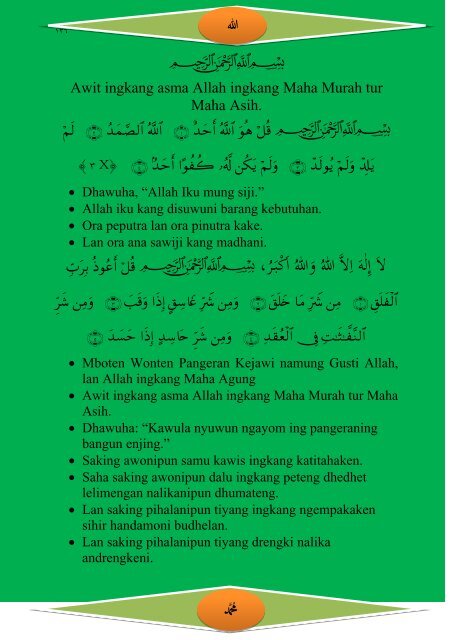 الله
١٢٦
بِسْمِ اللَّهِ الرَّحْمَٰنِ الرَّحِيمِ
Awit ingkang asma Allah ingkang Maha Murah tur
Maha Asih.
بِسْمِ اللَّهِ الرَّحْمَٰنِ الرَّحِيمِ قُلْ هُوَ ٱللَّهُ أَحَدٌ ۝ ٱللَّهُ ٱلصَّمَدُ ۝ لَمْ
يَلِدْ وَلَمْ يُولَدْ ۝ وَلَمْ يَكُن لَّهُۥ كُفُوًا أَحَدٌۢ ۝ ﴿٣ X﴾
• Dhawuha, “Allah Iku mung siji.”
• Allah iku kang disuwuni barang kebutuhan.
• Ora peputra lan ora pinutra kake.
• Lan ora ana sawiji kang madhani.
لاَ إِلٰهَ اِلاَّ اللهُ وَاللهُ اَكْبَرُ، بِسْمِ اللَّهِ الرَّحْمَٰنِ الرَّحِيمِ قُلْ أَعُوذُ بِرَبِّ
ٱلْفَلَقِ ۝ مِن شَرِّ مَا خَلَقَ ۝ وَمِن شَرِّ غَاسِقٍ إِذَا وَقَبَ ۝ وَمِن شَرِّ
ٱلنَّفَّٰثَٰتِ فِى ٱلْعُقَدِ ۝ وَمِن شَرِّ حَاسِدٍ إِذَا حَسَدَ ۝
• Mboten Wonten Pangeran Kejawi namung Gusti Allah,
lan Allah ingkang Maha Agung
• Awit ingkang asma Allah ingkang Maha Murah tur Maha
Asih.
• Dhawuha: “Kawula nyuwun ngayom ing pangeraning
bangun enjing.”
• Saking awonipun samu kawis ingkang katitahaken.
• Saha saking awonipun dalu ingkang peteng dhedhet
lelimengan nalikanipun dhumateng.
• Lan saking pihalanipun tiyang ingkang ngempakaken
sihir handamoni budhelan.
• Lan saking pihalanipun tiyang drengki nalika
andrengkeni.
محمد